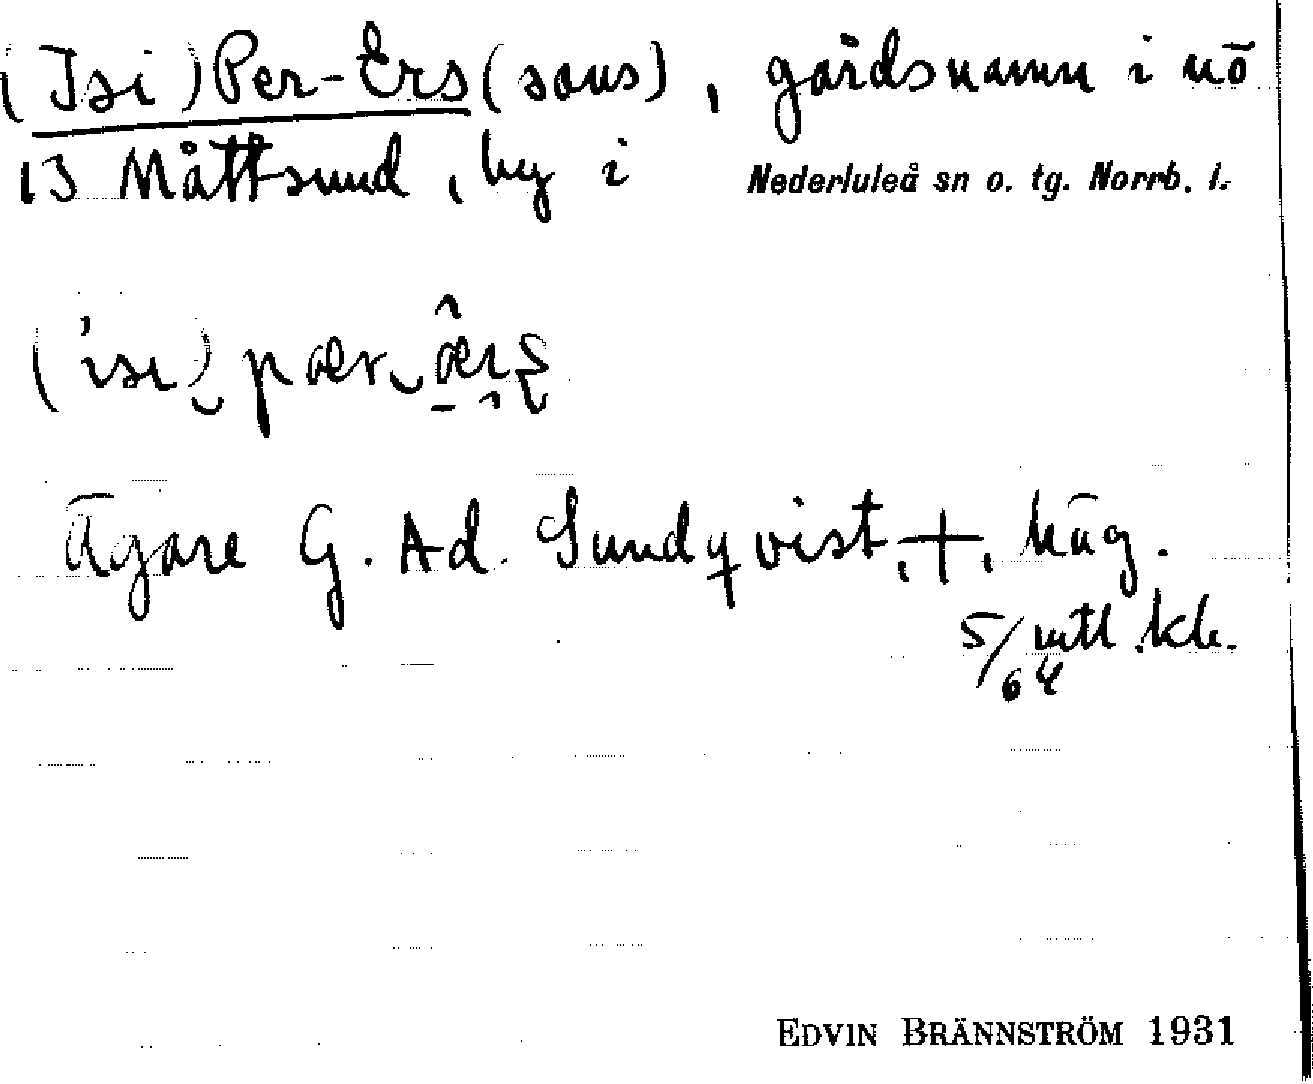 (Isi) Per-Ers (sons), gårdsnamn i nö
13 Måttsund, by i Nederluleå sn o. tg. Norrb. l.
Ägare G. Ad. Sundqvist, +, häg.
5/64 mtl kr.
EDVIN BRÄNNSTRÖM 1931